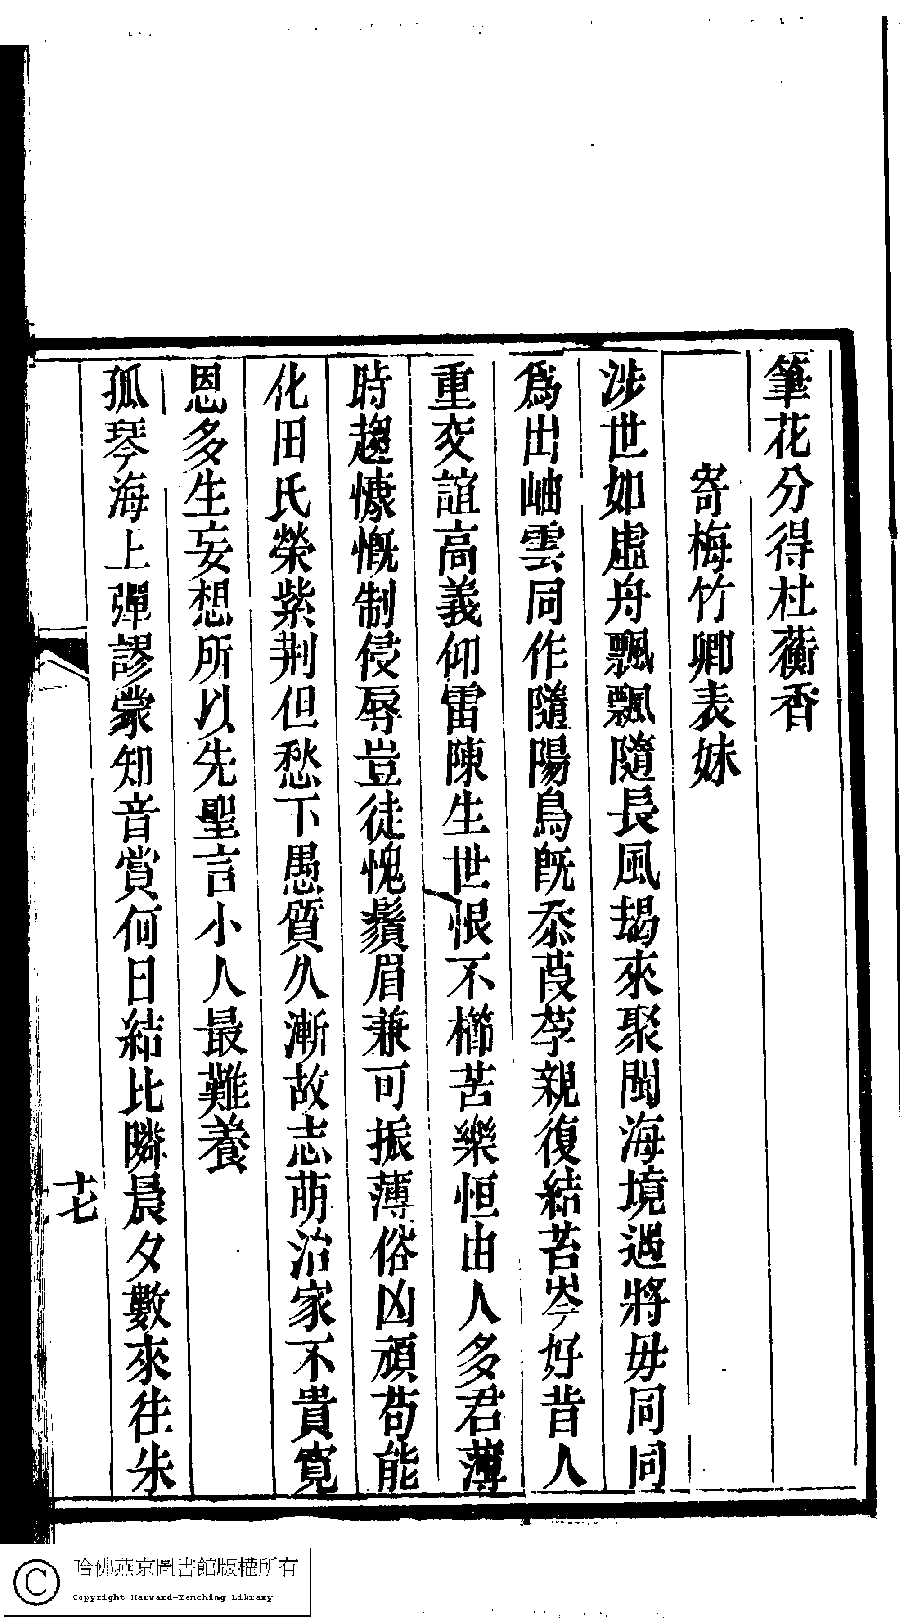 筆花分得杜蘅香
寄梅竹卿表妹
涉世如虛舟飄飄隨長風朅來聚閩海境遇將毋同同
爲出岫雲同作隨陽鳥旣忝葭莩親復結苔岑好昔人
重交誼高義仰雷陳生世恨不櫛苦樂恒由人多君薄
時趨慷慨制侵辱豈徒愧鬚眉兼可振薄俗凶頑苟能
化田氏榮紫荆但愁下愚質久漸故志萌治家不貴寬
恩多生妄想所以先聖言小人最難養
孤琴海上彈謬蒙知音賞何日結比隣晨夕數來往朱
十七
哈佛燕京圖書館版權所有
Copyright Harvard-Yenching Library